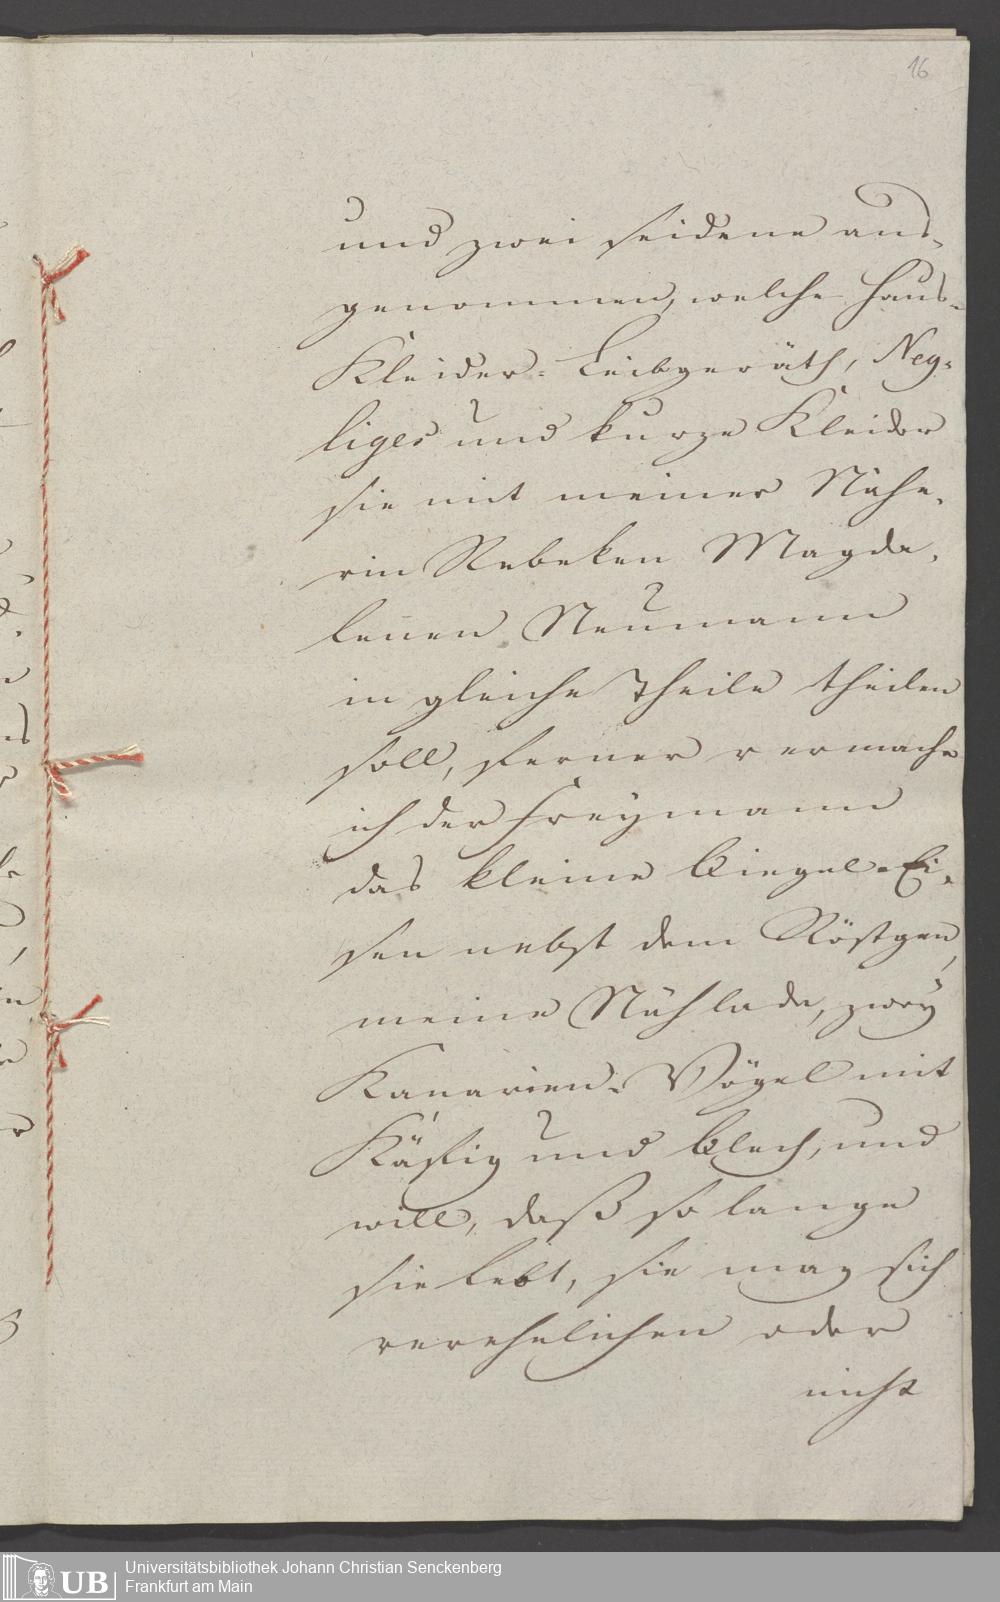 16
und zwei seidene aus-
genommen, welche Haus-
Kleider- Leibgeräth, Neg-
liges und kurze Kleider
sie mit meiner Nähe-
rin Rebeken Magda-
lenen Neumann
in gleiche Theile theilen
soll, ferner vermache
ich der Freymann
das kleine Biegel-Ei-
sen nebst dem Röstgen,
meine Nählade, zwey
Kanarien-Vögel mit
Käfig und Blech, und
will, daß so lange
sie lebt, sie mag sich
verehelichen oder
nicht
Universitätsbibliothek Johann Christian Senckenberg
Frankfurt am Main
UB